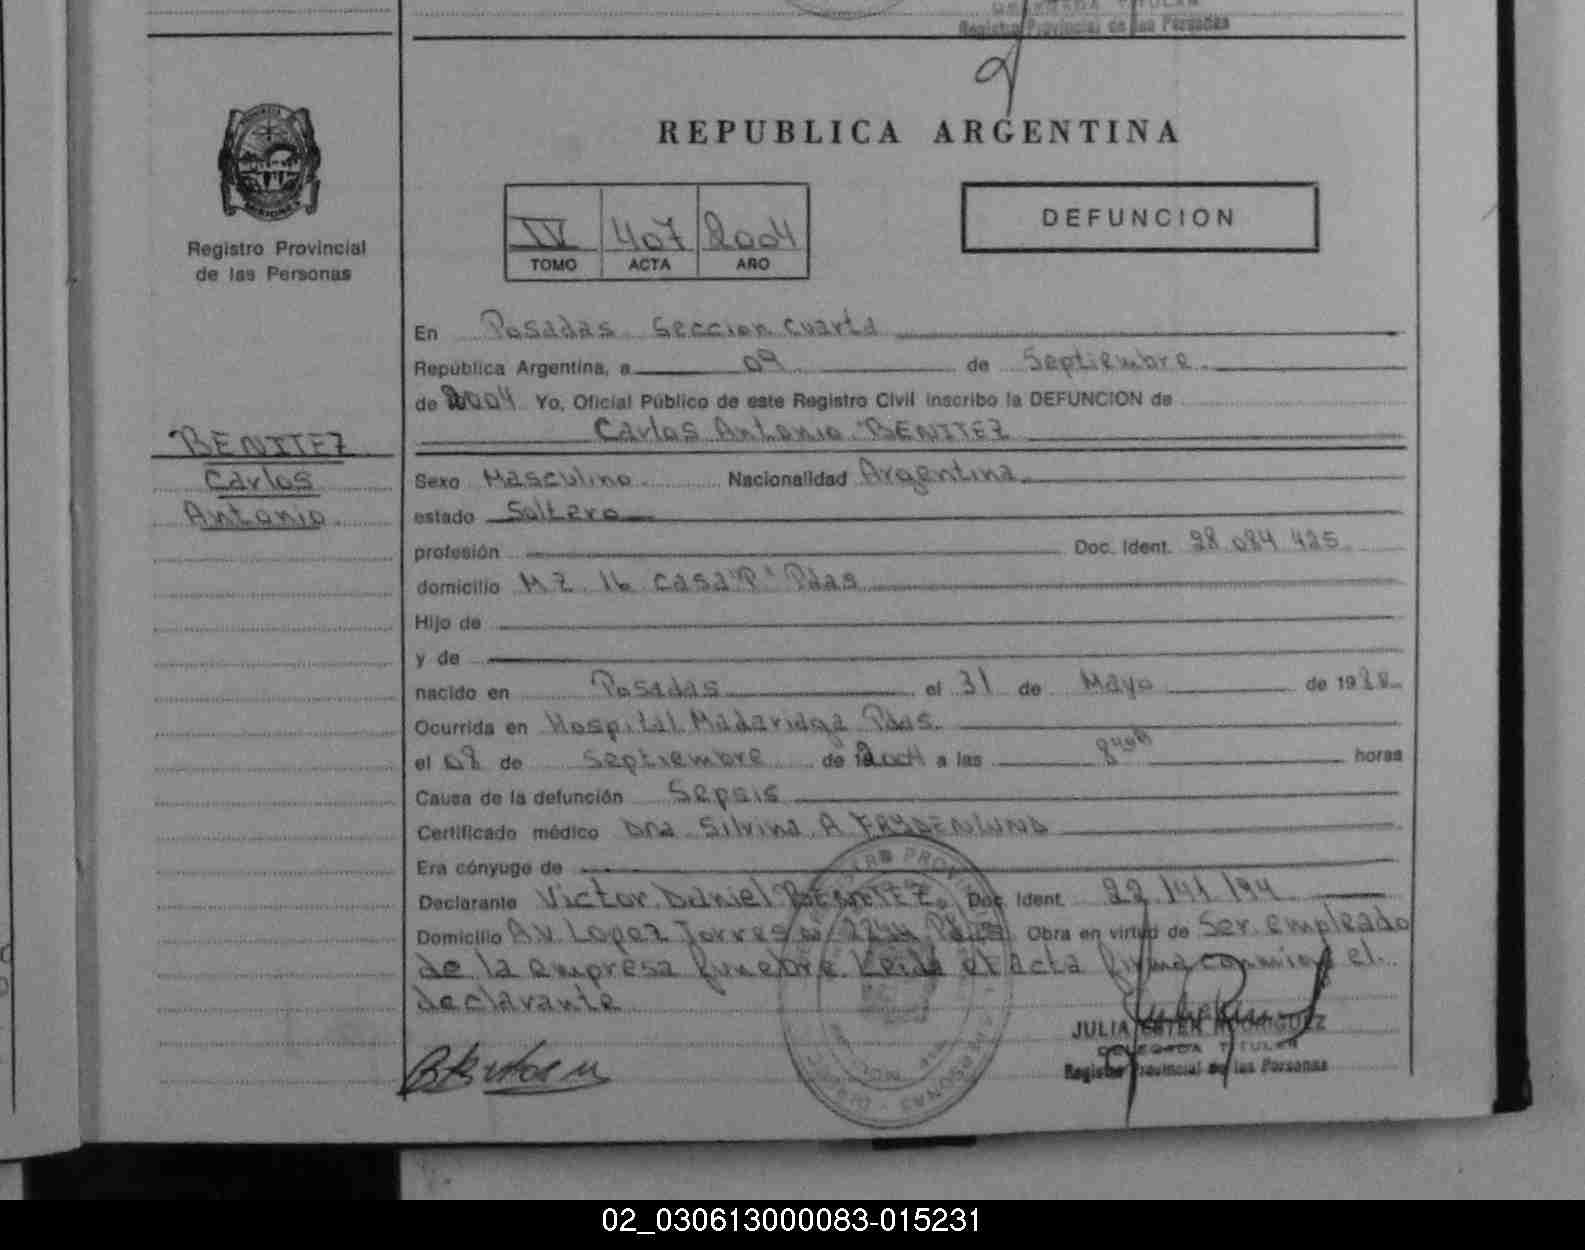 Registro Provincial de las Personas
REPUBLICA ARGENTINA
Registro Provincial
de las Personas
IV 407 2004
TOMO ACTA AÑO
DEFUNCION
BENITEZ
Carlos
Antonio
En Posadas Seccion Cuarta
República Argentina, a 09 de Septiembre
de 2004 Yo, Oficial Público de este Registro Civil inscribo la DEFUNCION de
Carlos Antonio BENITEZ
Sexo Masculino Nacionalidad Argentina
estado Soltero
profesión Doc. Ident. 28.084.425
domicilio Mz. 16 casa "P" Pdas
Hijo de
y de
nacido en Posadas el 31 de Mayo de 1980
Ocurrida en Hospital Madariaga Pdas.
el 08 de Septiembre de 2004 a las horas
Causa de la defunción Sepsis
Certificado médico Dra Silvina A FRYDENLUND
Era cónyuge de
Declarante Victor Daniel BENITEZ. Doc. Ident. 22.141.194
Domicilio Av. Lopez Torres 2244 Pdas Obra en virtud de Ser empleado
de la empresa funebre Leida el acta firma conmigo el
declarante
JULIA ESTER RODRIGUEZ
DELEGADA TITULAR
Registro Provincial de las Personas
02_030613000083-015231